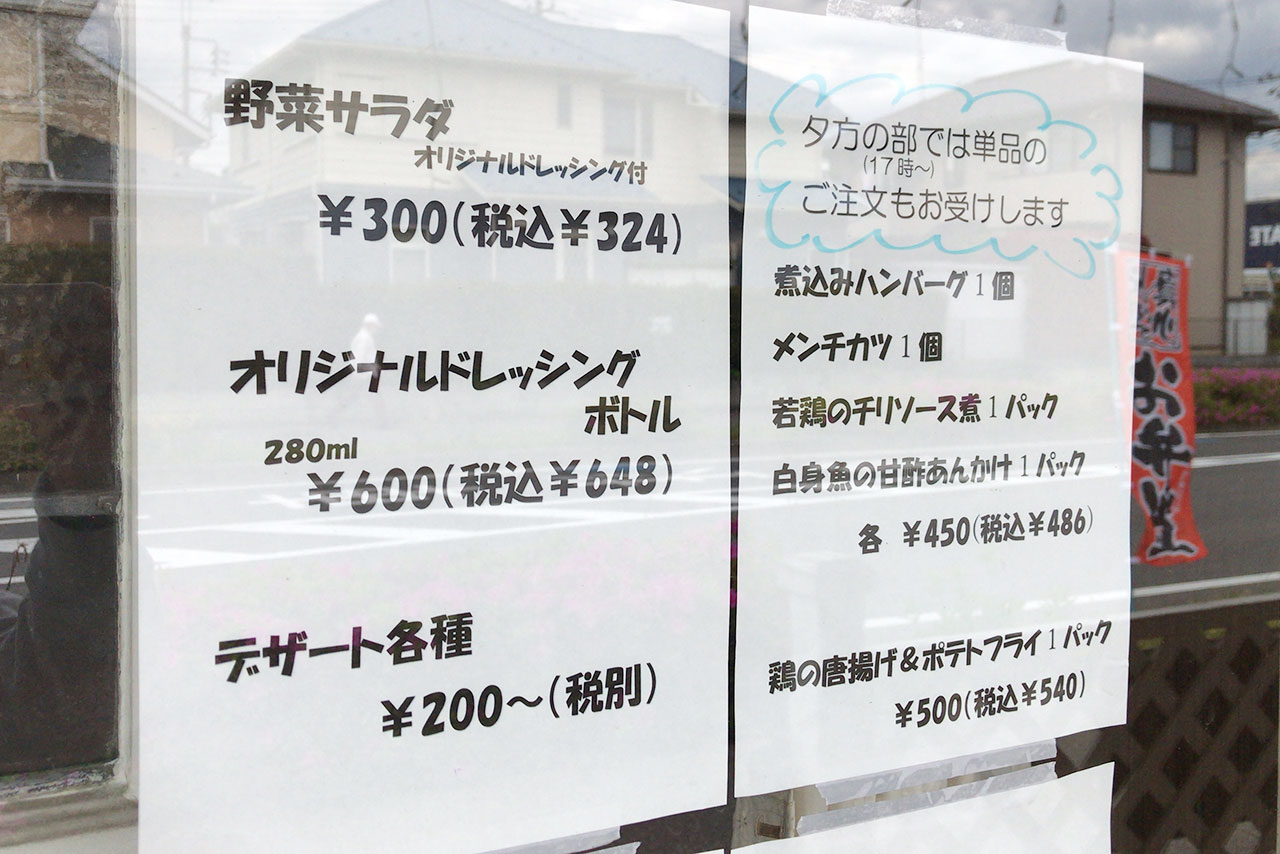 野菜サラダ
オリジナルドレッシング付
￥300(税込￥324)
オリジナルドレッシング
ボトル
280ml
￥600(税込￥648)
デザート各種
￥200～(税別)
夕方の部では単品の
(17時～)
ご注文もお受けします
煮込みハンバーグ1個
メンチカツ1個
若鶏のチリソース煮1パック
白身魚の甘酢あんかけ1パック
各 ￥450(税込￥486)
鶏の唐揚げ&ポテトフライ1パック
￥500(税込￥540)
お弁当